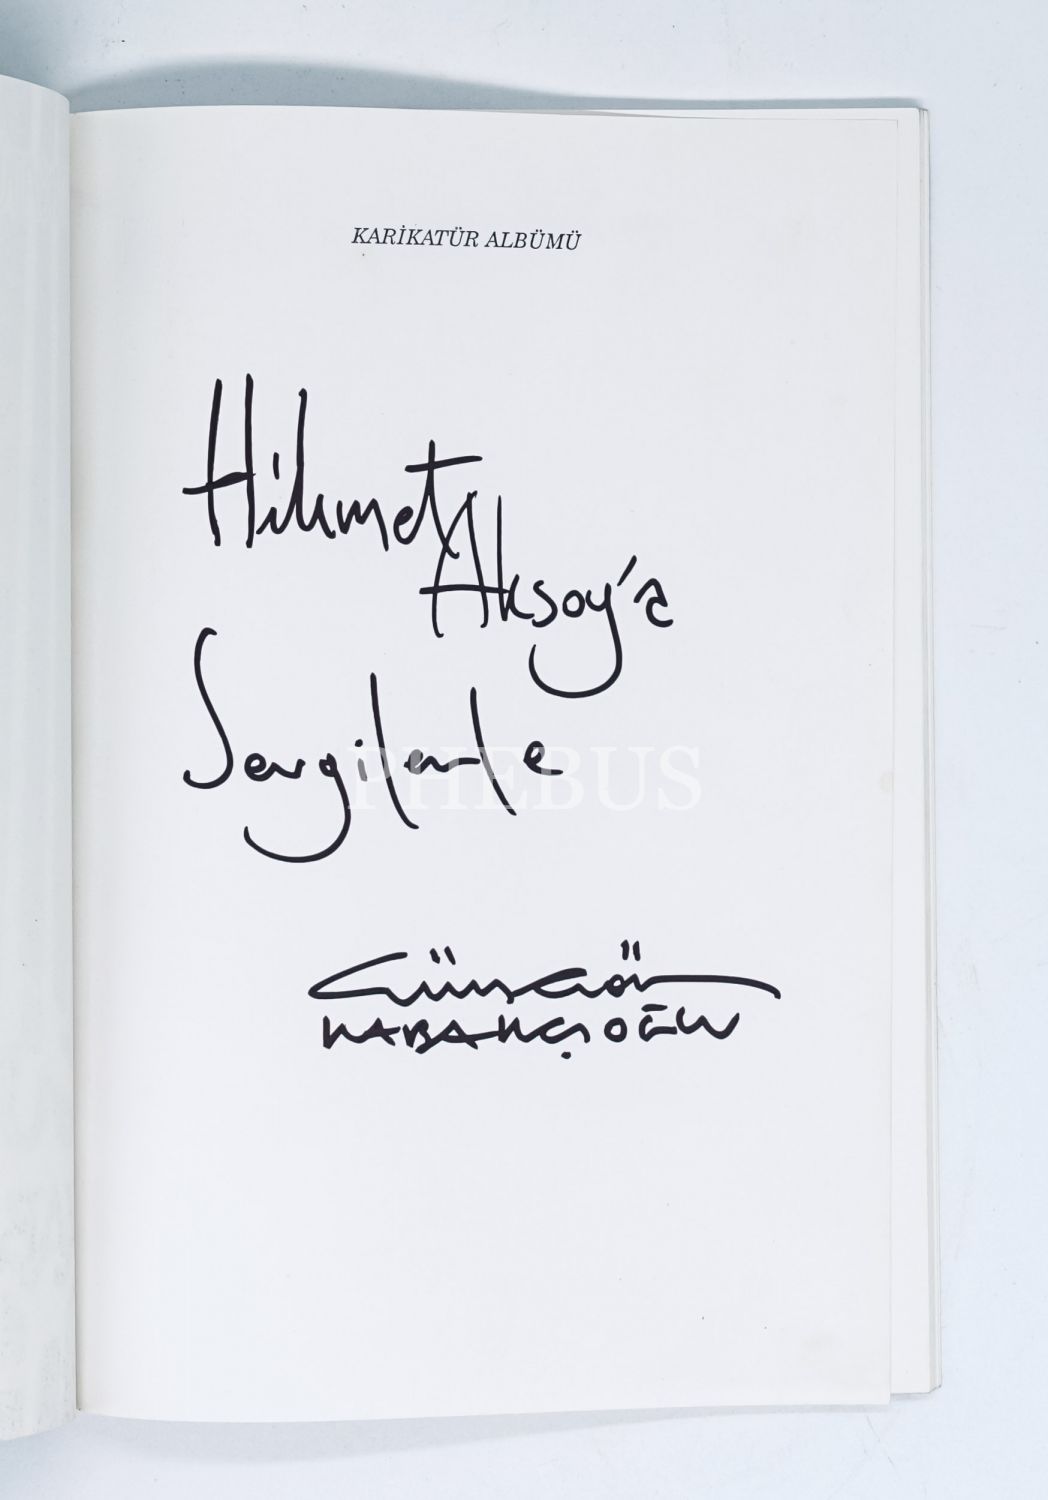 KARİKATÜR ALBÜMÜ
Hikmet
Aksoy'a
Sevgilerle
PHEBUS
Güngör
KABAKÇIOĞLU